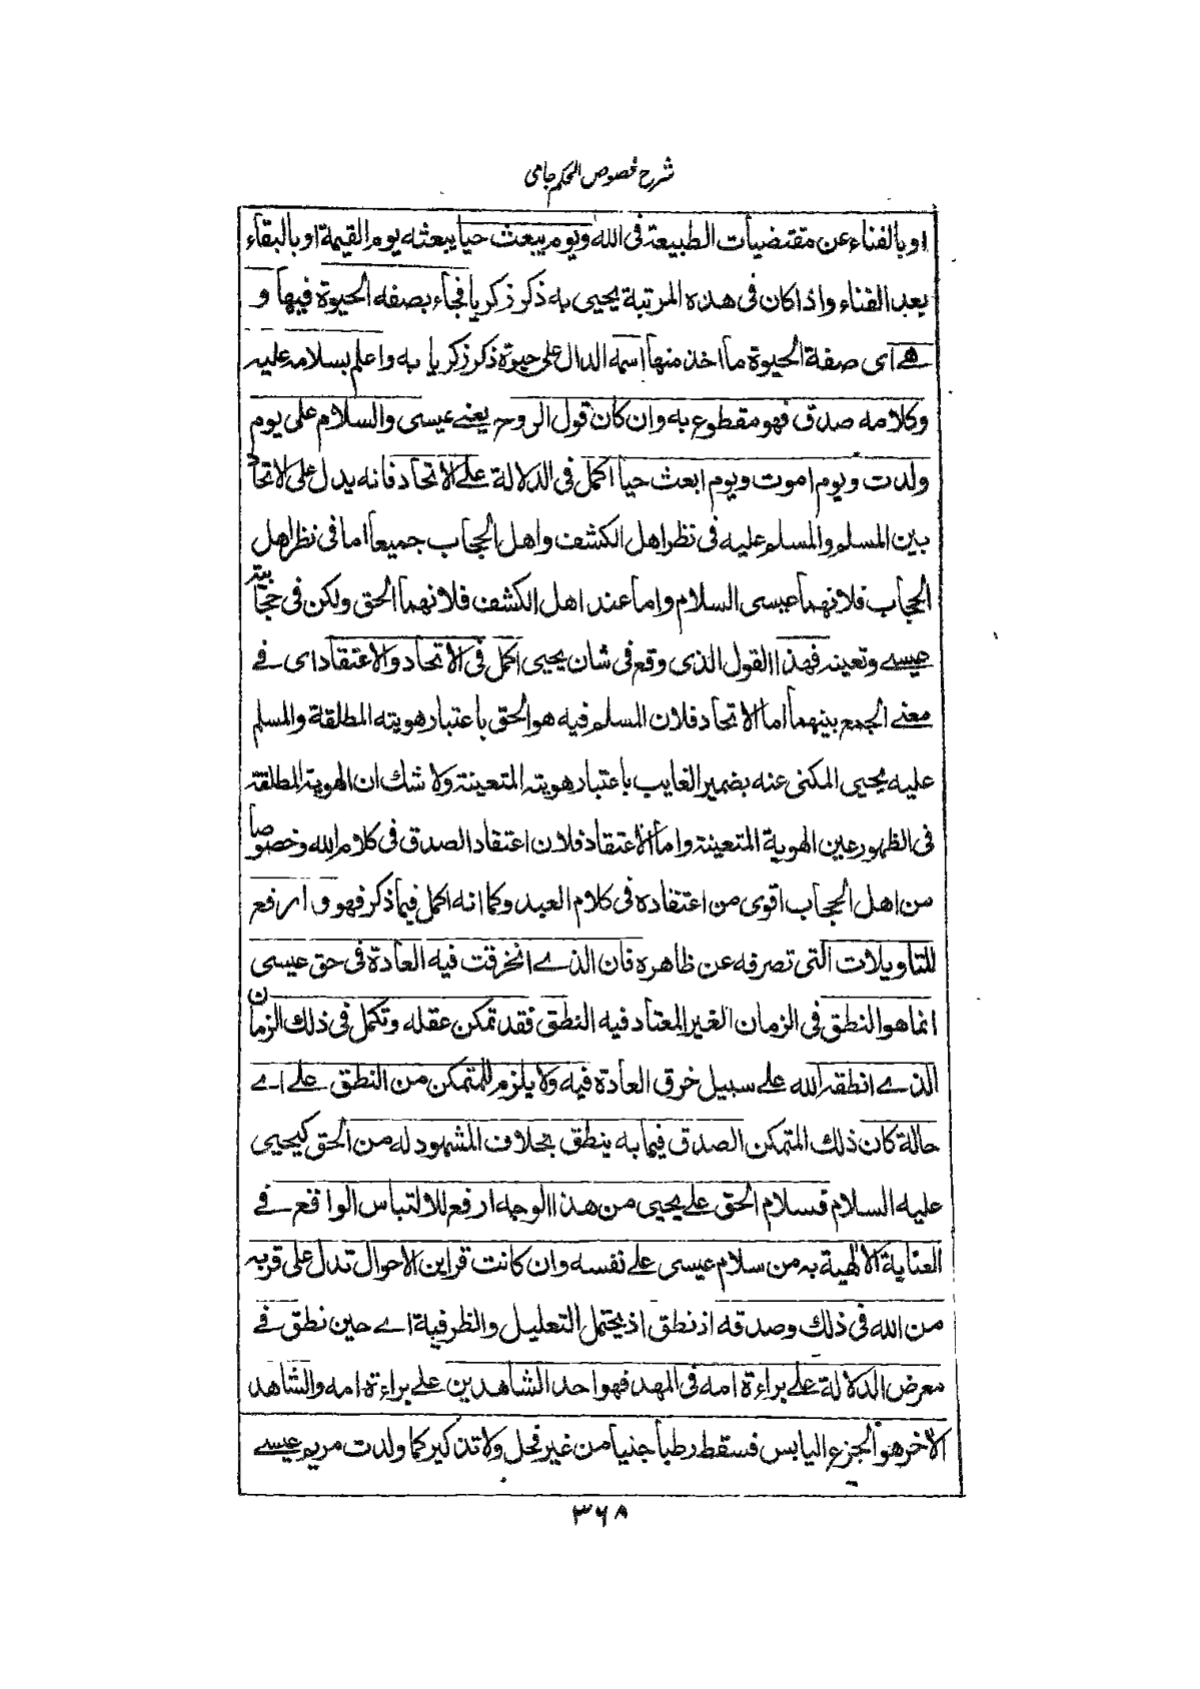 شرح فصوص الحكم جامى
او بالفناء عن مقتضيات الطبيعة فى الله ويوم يبعث حيا يبعثه يوم القيمة او بالبقاء
بعد الفناء واذا كان فى هذه المرتبة يحيى به ذكر زكريا فجاء بصفة الحيوة فيها و
هے اى صفة الحيوة ما اخذ منها اسمه الدال على حيوة ذكر زكريا به واعلم بسلامه عليه
وكلامه صدق فهو مقطوع به وان كان قول الروح يعنے عيسى والسلام على يوم
ولدت ويوم اموت ويوم ابعث حيا اكمل فى الدلالة علے الاتحاد فانه يدل على لاتحاد
بين المسلم والمسلم عليه فى نظر اهل الكشف واهل الحجاب جميعا اما فى نظر اهل
الحجاب فلانهما عيسى السلام واما عند اهل الكشف فلانهما الحق ولكن فى حجابية
عيسے وتعينه فهذا القول الذى وقع فى شان يحيى اكمل فى الاتحاد والاعتقاد اى فے
معنے الجمع بينهما اما الاتحاد فلان المسلم فيه هو الحق باعتبار هويته المطلقة والمسلم
عليه يحيى المكنى عنه بضمير الغايب باعتبار هويته المتعينة ولا شك ان الهوية المطلقة
فى الظهور عين الهوية المتعينة واما الاعتقاد فلان اعتقاد الصدق فى كلام الله وخصوصا
من اهل الحجاب اقوى من اعتقاده فى كلام العبد وكما انه اكمل فيما ذكر فهو و ارفع
للتاويلات التى تصرفه عن ظاهره فان الذے انخرقت فيه العادة فى حق عيسى
انما هو النطق فى الزمان الغير المعتاد فيه النطق فقد تمكن عقله وتكمل فى ذلك الزمان
الذے انطقه الله علے سبيل خرق العادة فيه ولا يلزم للمتمكن من النطق علے اے
حالة كان ذلك المتمكن الصدق فيما به ينطق بخلاف المشهود له من الحق كيحيى
عليه السلام فسلام الحق علے يحيى من هذا الوجه ارفع للالتباس الواقع فے
العناية الالهية به من سلام عيسى علے نفسه وان كانت قراين الاحوال تدل على قربه
من الله فى ذلك وصدقه اذ نطق اذ يحتمل التعليل والظرفية اے حين نطق فے
معرض الدلالة علے براءة امه فى المهد فهو احد الشاهدين علے براءة امه والشاهد
الاخر هو الجزع اليابس فسقط رطبا جنيا من غير فحل ولا تذكير كما ولدت مريم عيسے
٣٦٨